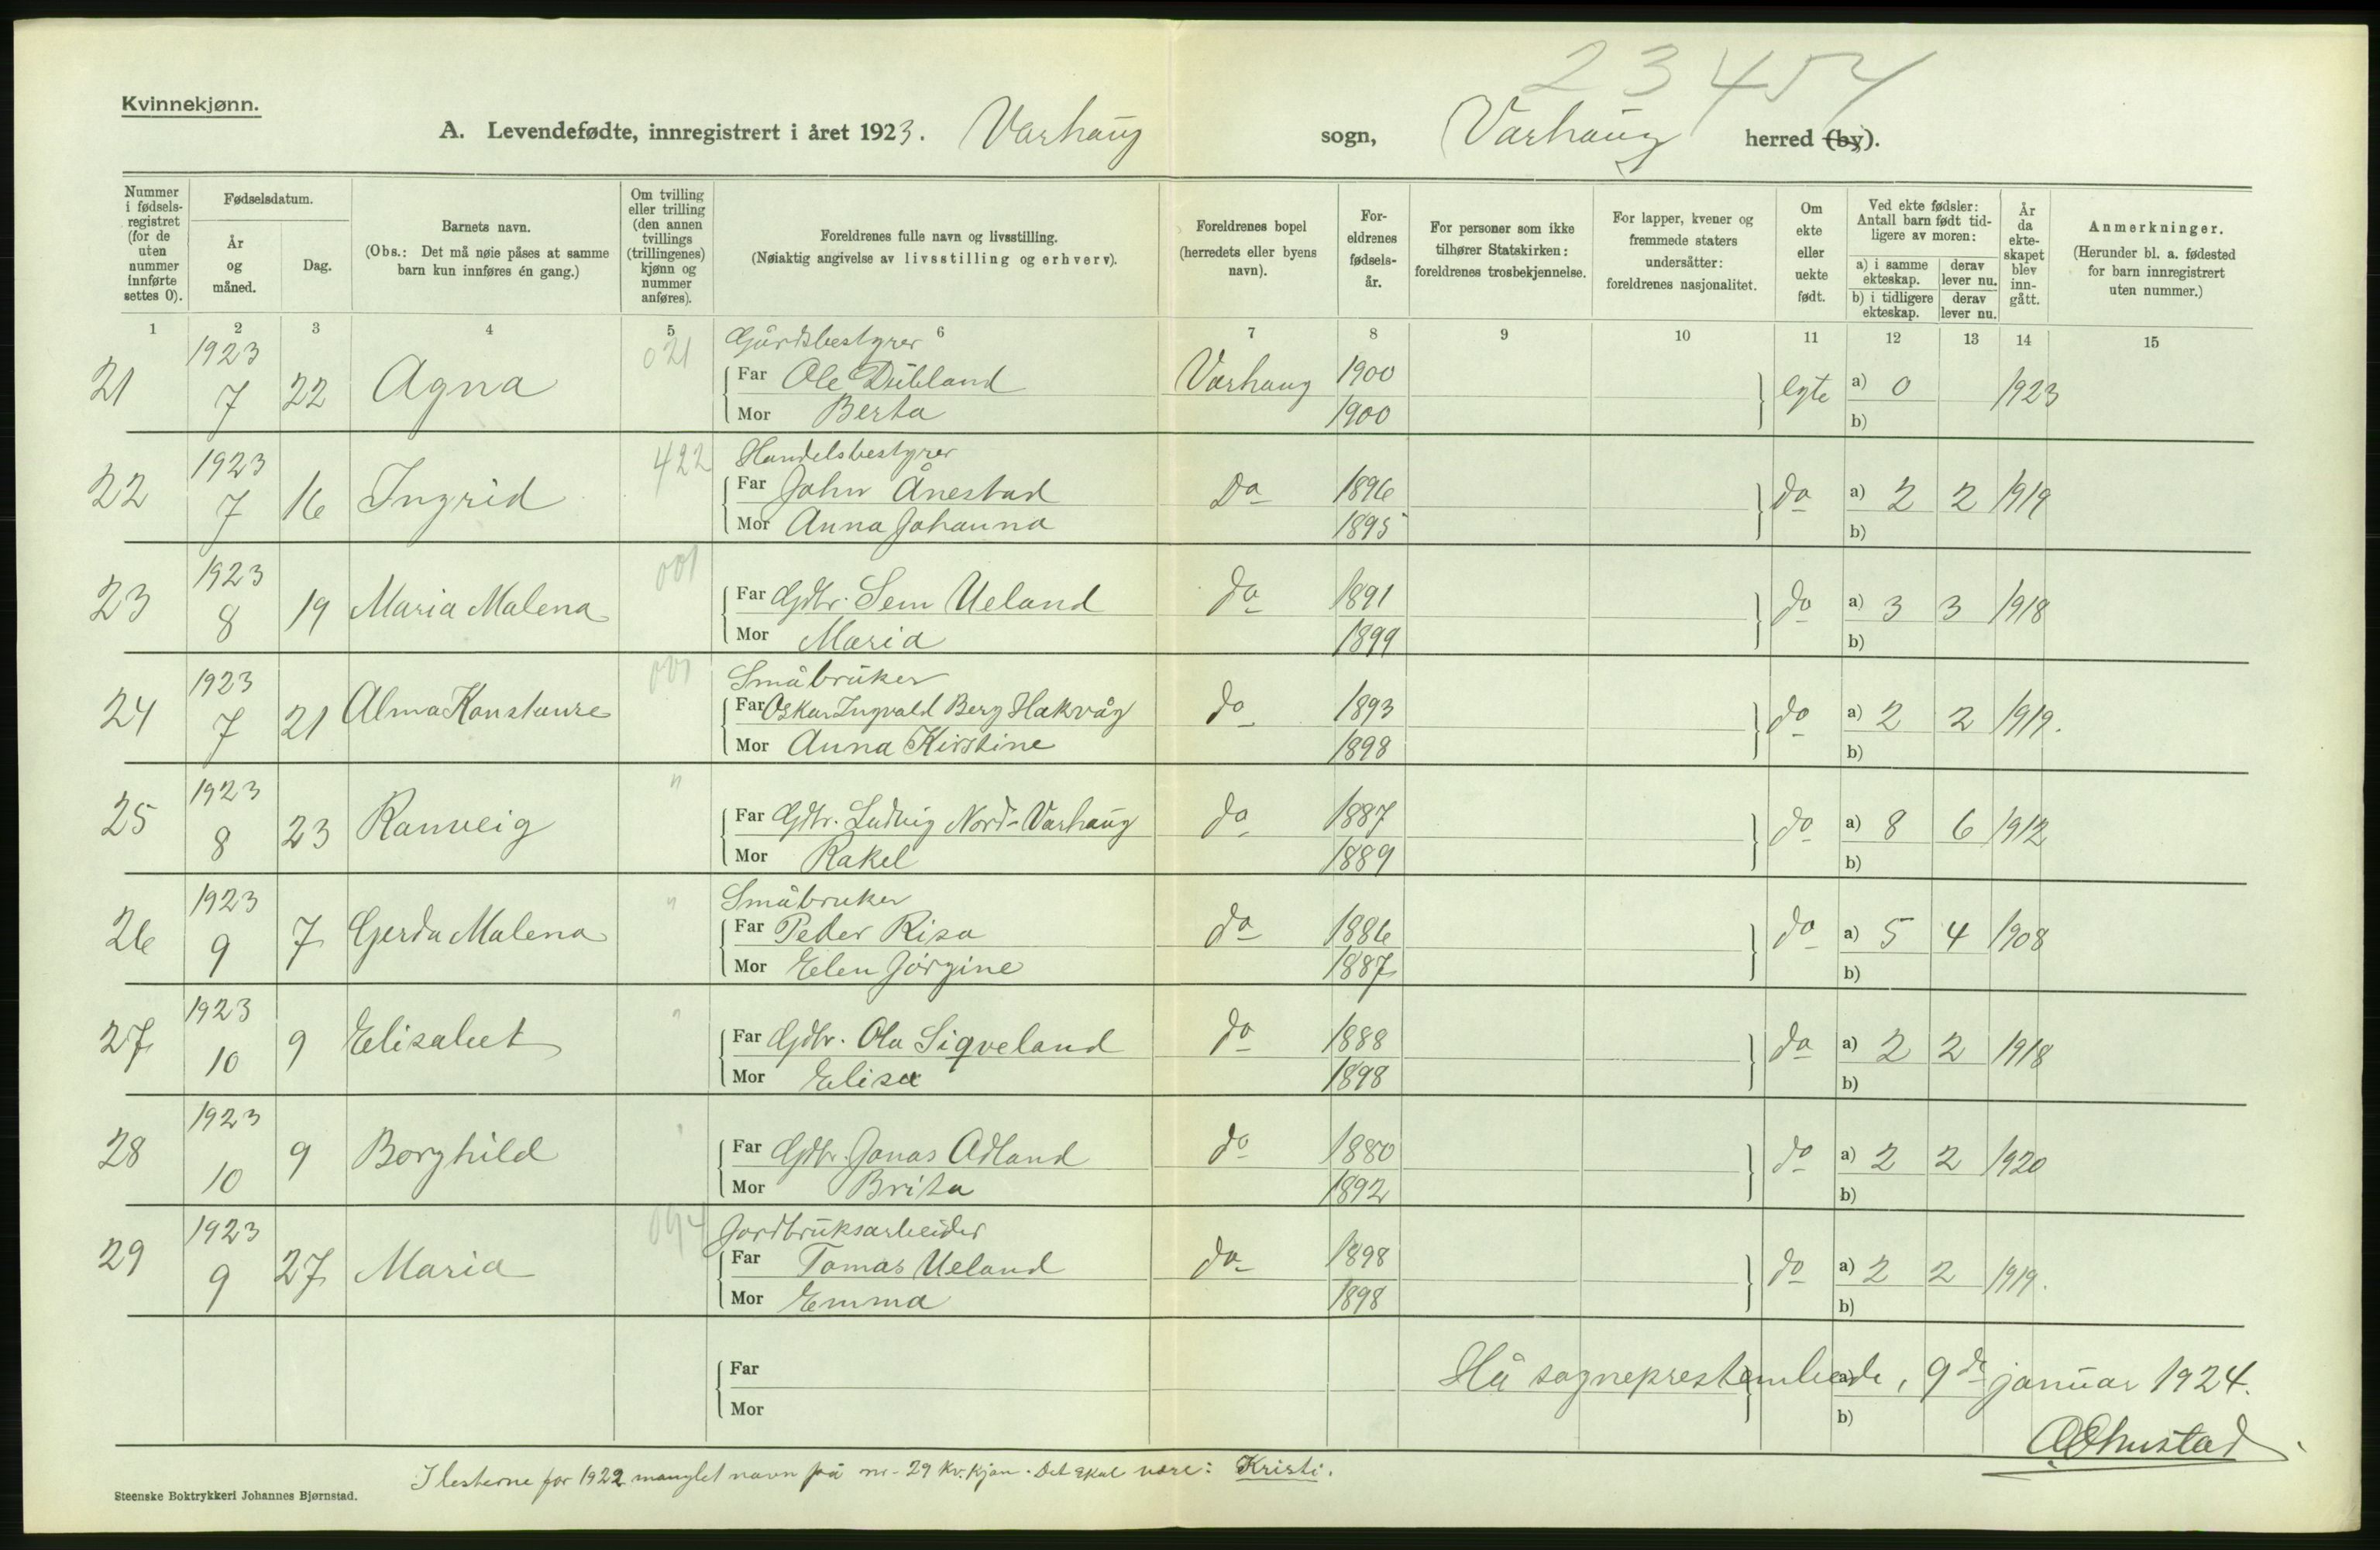 23454
Kvinnekjønn.
A. Levendefødte, innregistrert i året 1923. Varhaug sogn, Varhaug herred (by).
Nummer i fødselsregistret (for de uten nummer innførte settes 0).
Fødselsdatum.
År og måned.
Dag.
Barnets navn.
(Obs.: Det må nøie påses at samme barn kun innføres én gang.)
Om tvilling eller trilling (den annen tvillings (trillingenes) kjønn og nummer anføres).
Foreldrenes fulle navn og livsstilling.
(Nøiaktig angivelse av livsstilling og erhverv).
Foreldrenes bopel
(herredets eller byens navn).
Foreldrenes fødselsår.
For personer som ikke tilhører Statskirken: foreldrenes trosbekjennelse.
For lapper, kvener og fremmede staters undersåtter: foreldrenes nasjonalitet.
Om ekte eller uekte født.
Ved ekte fødsler: Antall barn født tidligere av moren:
a) i samme ekteskap.
derav lever nu.
b) i tidligere ekteskap.
derav lever nu.
År da ekteskapet blev inngått.
Anmerkninger.
(Herunder bl. a. fødested for barn innregistrert uten nummer.)
1 2 3 4 5 6 7 8 9 10 11 12 13 14 15
1923 021 Gårdsbestyrer
21 7 22 Agna Far Ole Dubland Varhaug 1900 egte a) 0 1923
Mor Berta 1900 b)
1923 422 Handelsbestyrer
22 7 16 Ingrid Far John Ånestad Do 1896 do a) 2 2 1919
Mor Anna Johanna 1895 b)
1923 001
23 8 19 Maria Malena Far Gdbr. Sem Ueland do 1891 do a) 3 3 1918
Mor Maria 1899 b)
1923 001 Småbruker
24 7 21 Alma Konstanse Far Oskar Ingvald Berg Hakvåg do 1893 do a) 2 2 1919.
Mor Anna Kirstine 1898 b)
1923 "
25 8 23 Ranveig Far Gdbr. Ludvig Nord-Varhaug do 1887 do a) 8 6 1912
Mor Rakel 1889 b)
1923 " Småbruker
26 9 7 Gerda Malena Far Peder Risa do 1886 do a) 5 4 1908
Mor Elen Jørgine 1887 b)
1923 "
27 10 9 Elisabet Far Gdbr. Ola Siqveland do 1888 do a) 2 2 1918
Mor Elisa 1898 b)
1923
28 10 9 Borghild Far Gdbr. Jonas Adland do 1880 do a) 2 2 1920
Mor Brita 1892 b)
1923 094 Jordbruksarbeider
29 9 27 Maria Far Tomas Ueland do 1898 do a) 2 2 1919.
Mor Emma 1898 b)
Far a)
Hå sogneprestembede, 9de januar 1924.
Mor b)
I listerne for 1922 manglet navn på nr. 29 kv.kjøn. Det skal være: Kristi.
Steenske Boktrykkeri Johannes Bjørnstad.